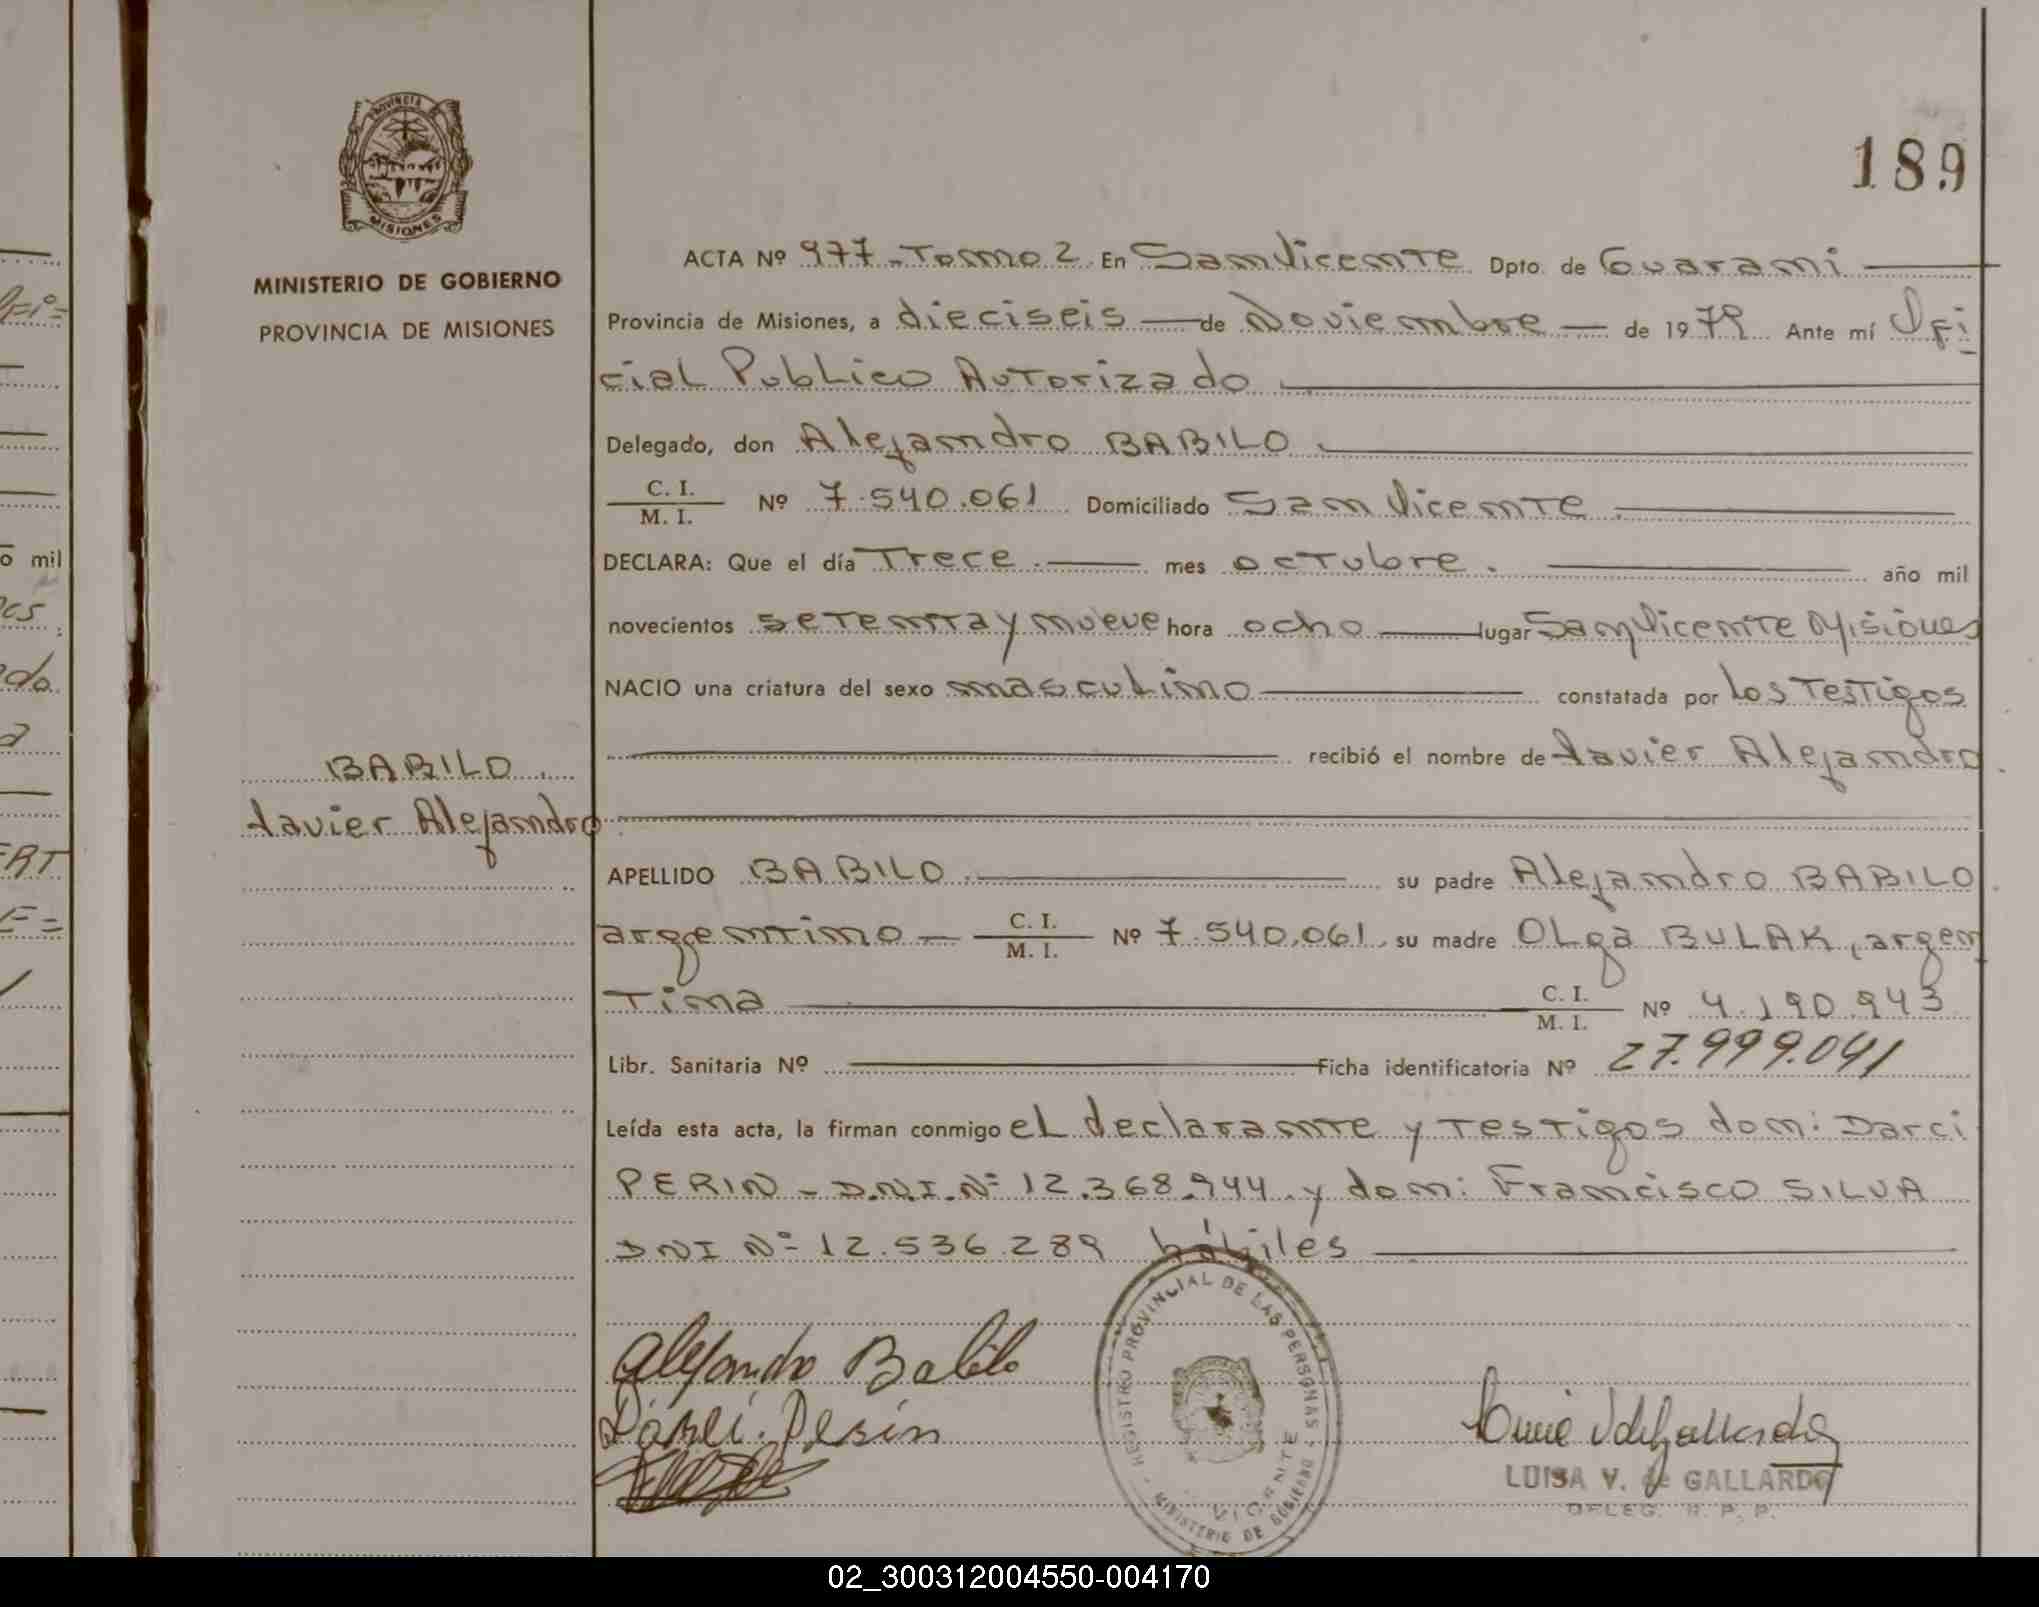 PROVINCIA DE
MISIONES
MINISTERIO DE GOBIERNO
PROVINCIA DE MISIONES
189
ACTA Nº 977 - Tomo 2. En San Vicente Dpto. de Guarani
Provincia de Misiones, a dieciseis de Noviembre de 1979. Ante mí Ofi
cial Publico Autorizado
Delegado, don Alejandro BABILO.
C. I.
M. I. Nº 7.540.061 Domiciliado San Vicente.
DECLARA: Que el día Trece. mes octubre. año mil
novecientos setenta y nueve hora ocho lugar San Vicente Misiones
NACIO una criatura del sexo masculino constatada por los Testigos
recibió el nombre de Javier Alejandro
BABILO.
Javier Alejandro
APELLIDO BABILO. su padre Alejandro BABILO
argentino C. I.
M. I. Nº 7.540.061. su madre OLga BULAK, argen
Tina C. I.
M. I. Nº 4.190.943
Libr. Sanitaria Nº Ficha identificatoria Nº 27.999.041
Leída esta acta, la firman conmigo eL declarante y Testigos don: Darci
PERIN - D.N.I. Nº 12.368.944. y don: Francisco SILVA
DNI Nº 12.536.289 hábiles
Alejandro Babilo
Darci. Perin
REGISTRO PROVINCIAL DE LAS PERSONAS
MINISTERIO DE GOBIERNO
VICENTE
LUISA V. de GALLARDO
DELEG. R. P. P.
o mil
do
a
ERT
02_300312004550-004170